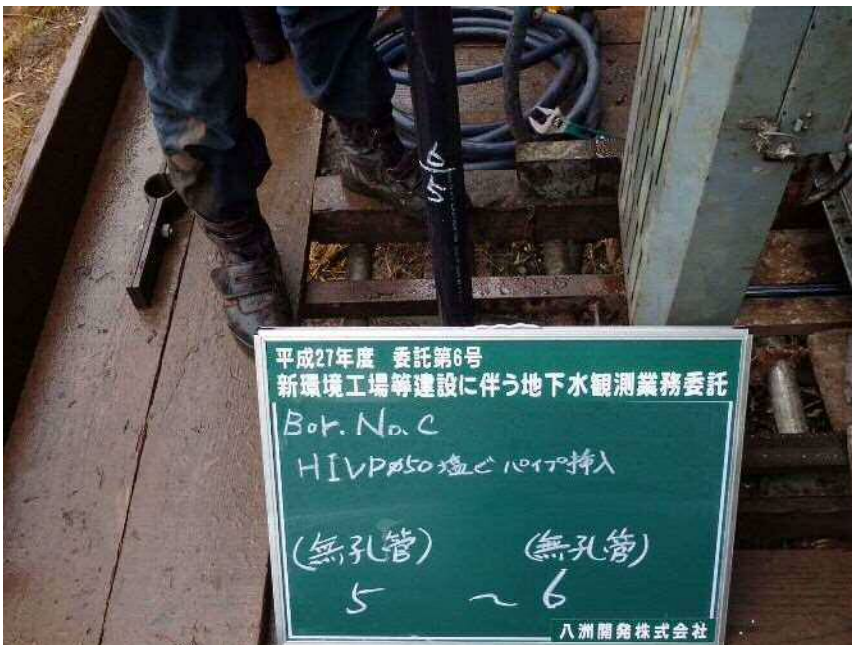 6/5
平成27年度 委託第6号
新環境工場等建設に伴う地下水観測業務委託
Bor. No. C
HIVPø50塩ビパイプ挿入
(無孔管) (無孔管)
5 ~ 6
八洲開発株式会社